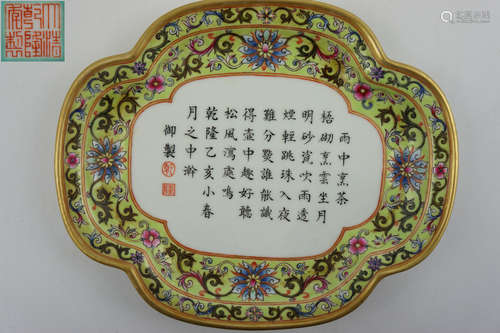 雨中烹茶
梧㔉烹雲坐月
明砂瓷吹雨透
煙輕跳珠入夜
難分點誰能識
得壺中趣好聽
松風瀉處鳴
乾隆乙亥小春
月之中澣
御製
大清
乾隆
年製